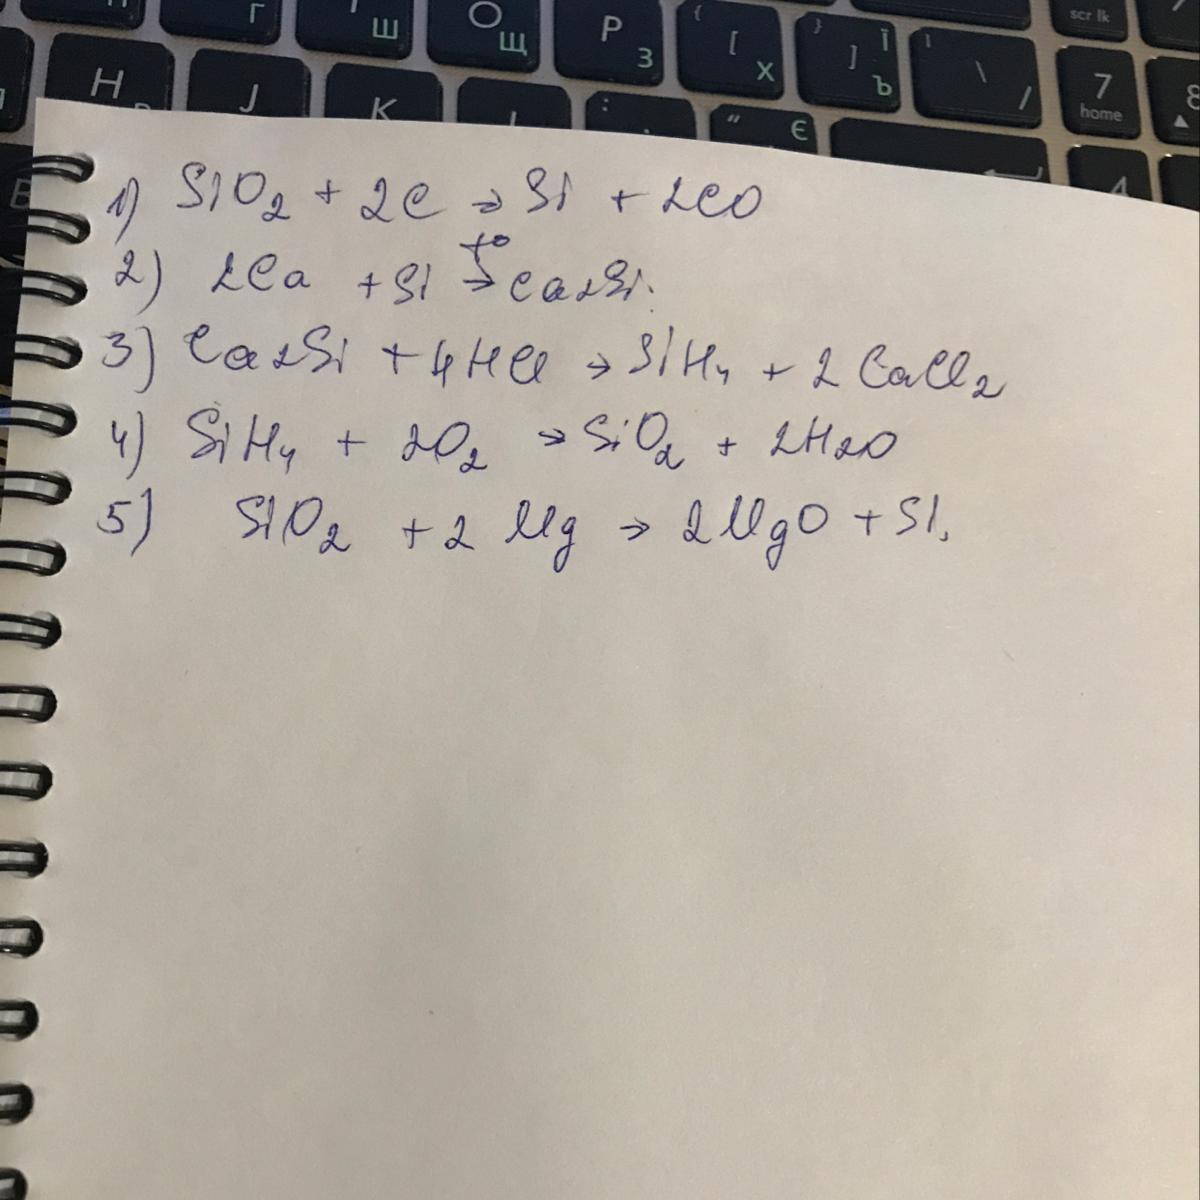 Г Ш O Щ P З { [ Х } ] Ї Ъ | \ / scr lk 7 home 8
H J K : " Є 4
1) SiO2 + 2C → Si + 2CO
2) 2Ca + Si t° → Ca2Si.
3) Ca2Si + 4HCl → SiH4 + 2CaCl2
4) SiH4 + 2O2 → SiO2 + 2H2O
5) SiO2 + 2Mg → 2MgO + Si.